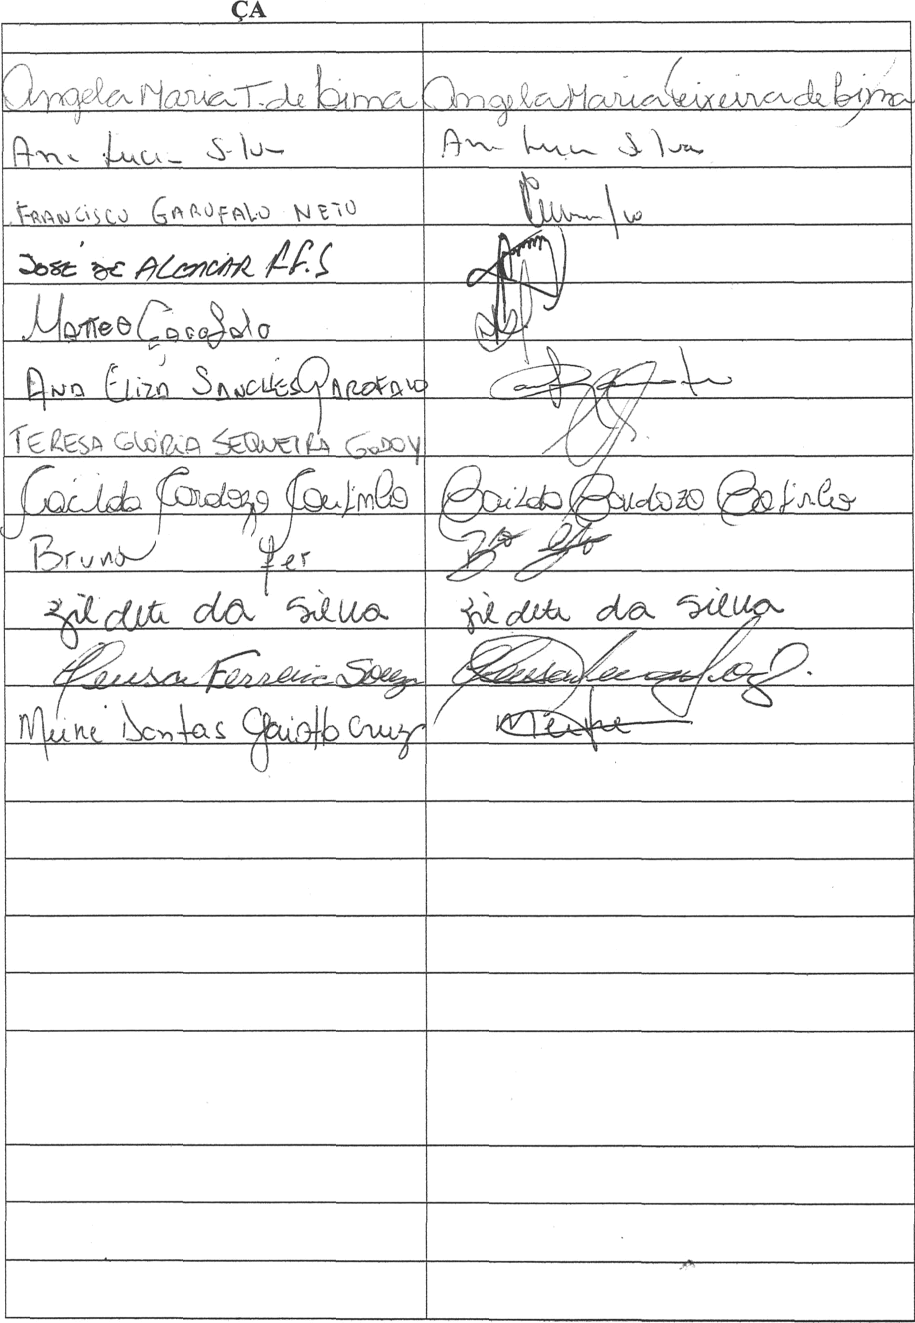 ÇA
Angela Maria T. de Lima Angela Maria Teixeira de Lima
Ana Lucia Silva Ana Lucia Silva
FRANCISCO GAROFALO NETO
JOSÉ DE ALENCAR F.F.S
Matteo Garofalo
ANA ELIZA SANCHES GAROFALO
TERESA GLÓRIA SEQUEIRA GODOY
Cacilda Cardozo Coutinho Cacilda Cardozo Cotinho
Bruna
Zildete da Silva Zildete da Silva
Neusa Ferreira Souza
Meire Dantas Gaiotto Cruz